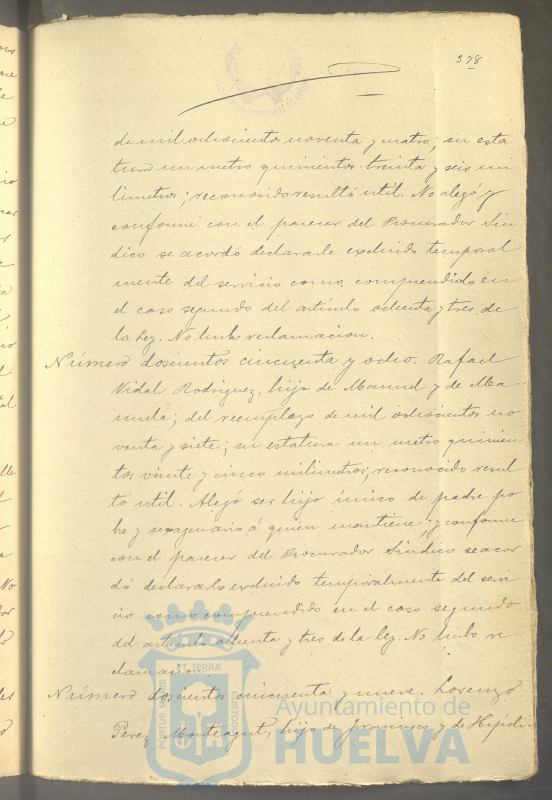 378
de mil ochocientos noventa y cuatro; su esta
tura un metro quinientos treinta y seis mi
límetros; reconocido resultó util. No alegó y
conforme con el parecer del Procurador Sín
dico se acordó declararle excluido temporal
mente del servicio como comprendido en
el caso segundo del artículo ochenta y tres de
la Ley. No hubo reclamacion.
Número doscientos cincuenta y ocho. Rafael
Vidal Rodriguez, hijo de Manuel y de Ma
nuela; del reemplazo de mil ochocientos no
venta y siete; su estatura un metro quinien
tos veinte y cinco milimetros; reconocido resul
tó util. Alegó ser hijo único de padre po
bre y sexagenario á quien mantiene; y conforme
con el parecer del Procurador Síndico se acor
dó declararlo excluido temporalmente del servi
cio como comprendido en el caso segundo
del artículo ochenta y tres de la ley. No hubo re
clamacion.
Número doscientos cincuenta y nueve. Lorenzo
Perez Monteagut, hijo de Francisco y de Hipóli-
PORTUS MARIS ET TERRÆ CUSTODIA
Ayuntamiento de
HUELVA